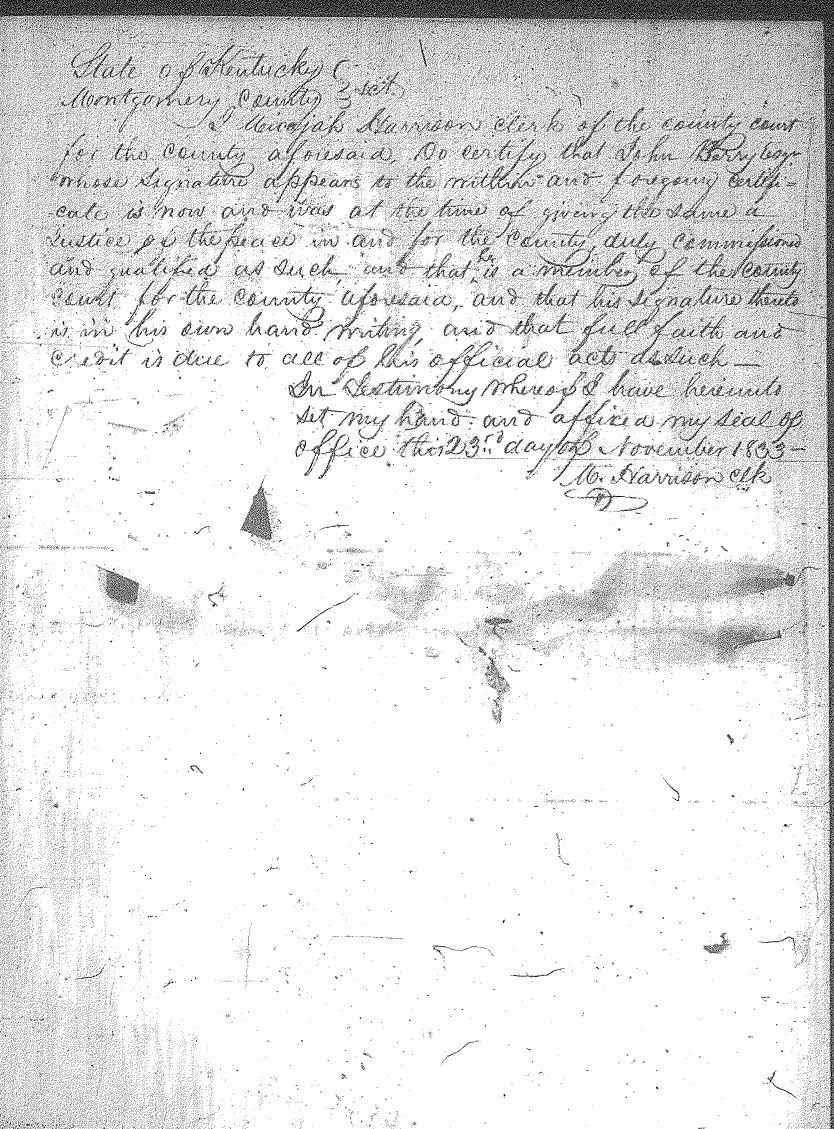 State of Kentucky
Montgomery County } sct
I Micajah Harrison clerk of the county court
for the county aforesaid, Do certify that John Berry Esqr
whose signature appears to the within and foregoing certifi-
cate is now and was at the time of giving the same a
Justice of the peace in and for the county, duly commissioned
and qualified as such, and that he is a member of the county
court for the county aforesaid, and that his signature thereto
is in his own hand writing, and that full faith and
credit is due to all of his official acts as such —
In Testimony whereof I have hereunto
set my hand and affixed my seal of
office this 23rd day of November 1833 —
M. Harrison clk